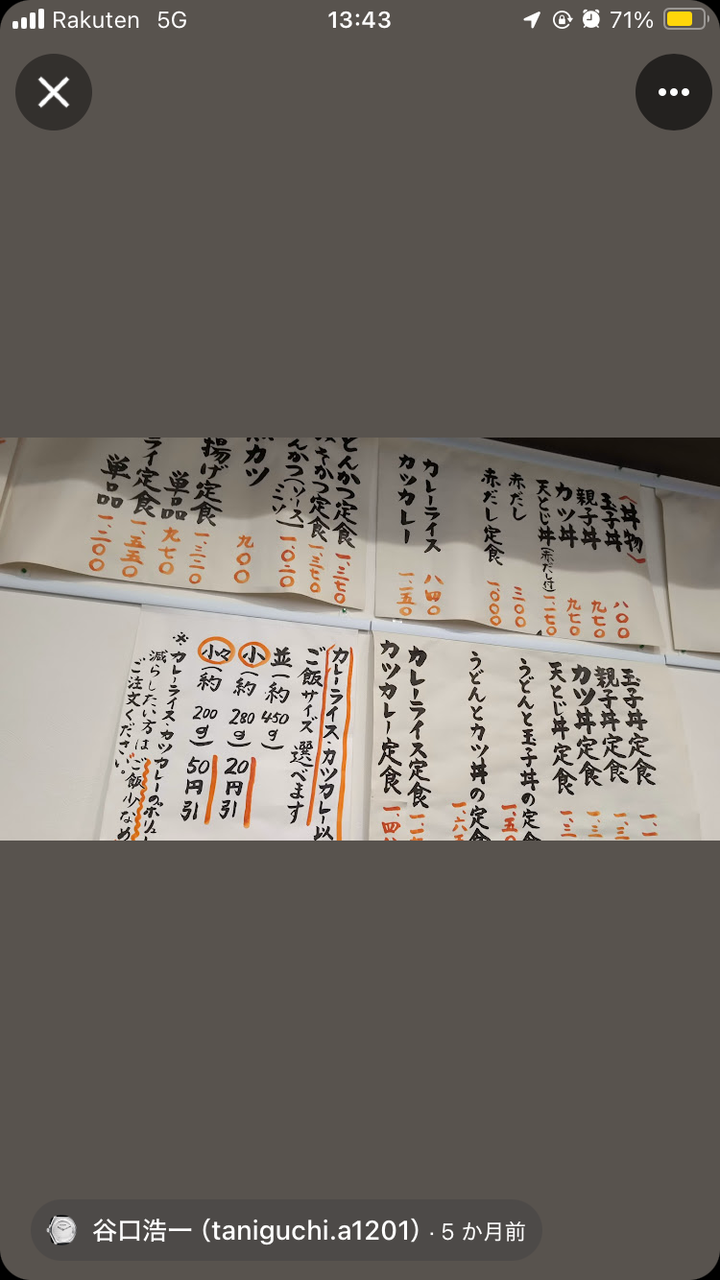 Rakuten 5G 13:43 71%
〈丼物〉
玉子丼 八〇〇
親子丼 九七〇
カツ丼 九七〇
天とじ丼(赤だし付) 一、一七〇
赤だし 三〇〇
赤だし定食 一〇〇〇
カレーライス 八四〇
カツカレー 一、一五〇
とんかつ定食 一、三七〇
みそかつ定食 一、三七〇
んかつ(ソース)ミソ 一、〇二〇
カツ 九〇〇
揚げ定食 一、三二〇
単品 九七〇
ライ定食 一、五五〇
単品 一、二〇〇
玉子丼定食 一、一
親子丼定食 一、三
カツ丼定食 一、三
天とじ丼定食 一、三
うどんと玉子丼の定食 一、五
うどんとカツ丼の定食 一、六
カレーライス定食 一、
カツカレー定食 一、四
カレーライス・カツカレー以
ご飯サイズ選べます
並(約450g)
小(約280g) 20円引
小々(約200g) 50円引
※カレーライス・カツカレーのボリュー
減らしたい方は"ご飯少なめ
ご注文ください。
谷口浩一(taniguchi.a1201)・5 か月前